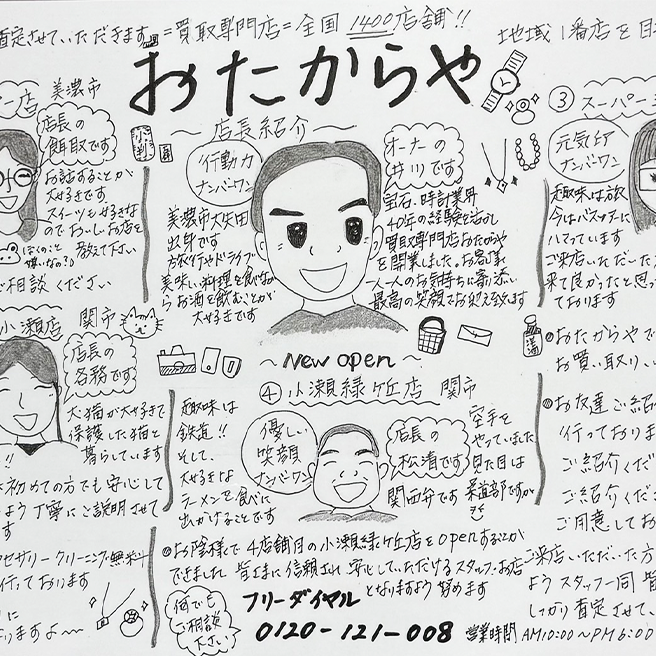 査定させていただきます =買取専門店= 全国 1400店舗!!
地域1番店を目
おたからや
〜店長紹介〜
店 美濃市
店長の
餌取です
お話することが
大好きです
スイーツも好きなので
おいしいお店を
教えて下さい
ぼくのこと
嫌いなの?
ご相談ください
行動力
ナンバーワン
美濃市大矢田
出身です
旅行やドライブ
美味しい料理を食べなが
らお酒を飲むことが
大好きです
オーナーの
井川です
宝石、時計業界
40年の経験を活かし
買取専門店おたからや
を開業しました。お客様
一人一人のお気持ちに寄り添い
最高の笑顔でお迎え致します
③ スーパー
元気印
ナンバーワン
趣味は放
今はバスツアーに
ハマっています
ご来店いただいた
来て良かったと思っ
ております
小瀬店 関市
店長の
各務です
犬、猫が大好きで
保護した猫と
暮らしています
初めての方でも安心して
よう丁寧にご説明させて
す
クセサリークリーニング無料
行っております
に
なりますよ〜
〜New open〜
④ 小瀬緑ヶ丘店 関市
趣味は
鉄道!!
そして、
大好きな
ラーメンを食べに
出かけることです
優しい
笑顔
ナンバーワン
店長の
松清です
関西弁です
空手を
やっていました
見た目は
柔道部ですが
●おたからやで
お買い取り、
●お友達ご紹介
行っておりま
ご紹介くだ
ご紹介くださ
ご用意してお
●お陰様で4店舗目の小瀬緑ヶ丘店をopenすることが
できました 皆さまに信頼され 安心していただけるスタッフ・お店
となりますよう努めます
ご来店いただいた方
ようスタッフ一同 皆
しっかり査定させて、
何でも
ご相談
下さい
フリーダイヤル
0120-121-008 営業時間 AM10:00〜PM6:00